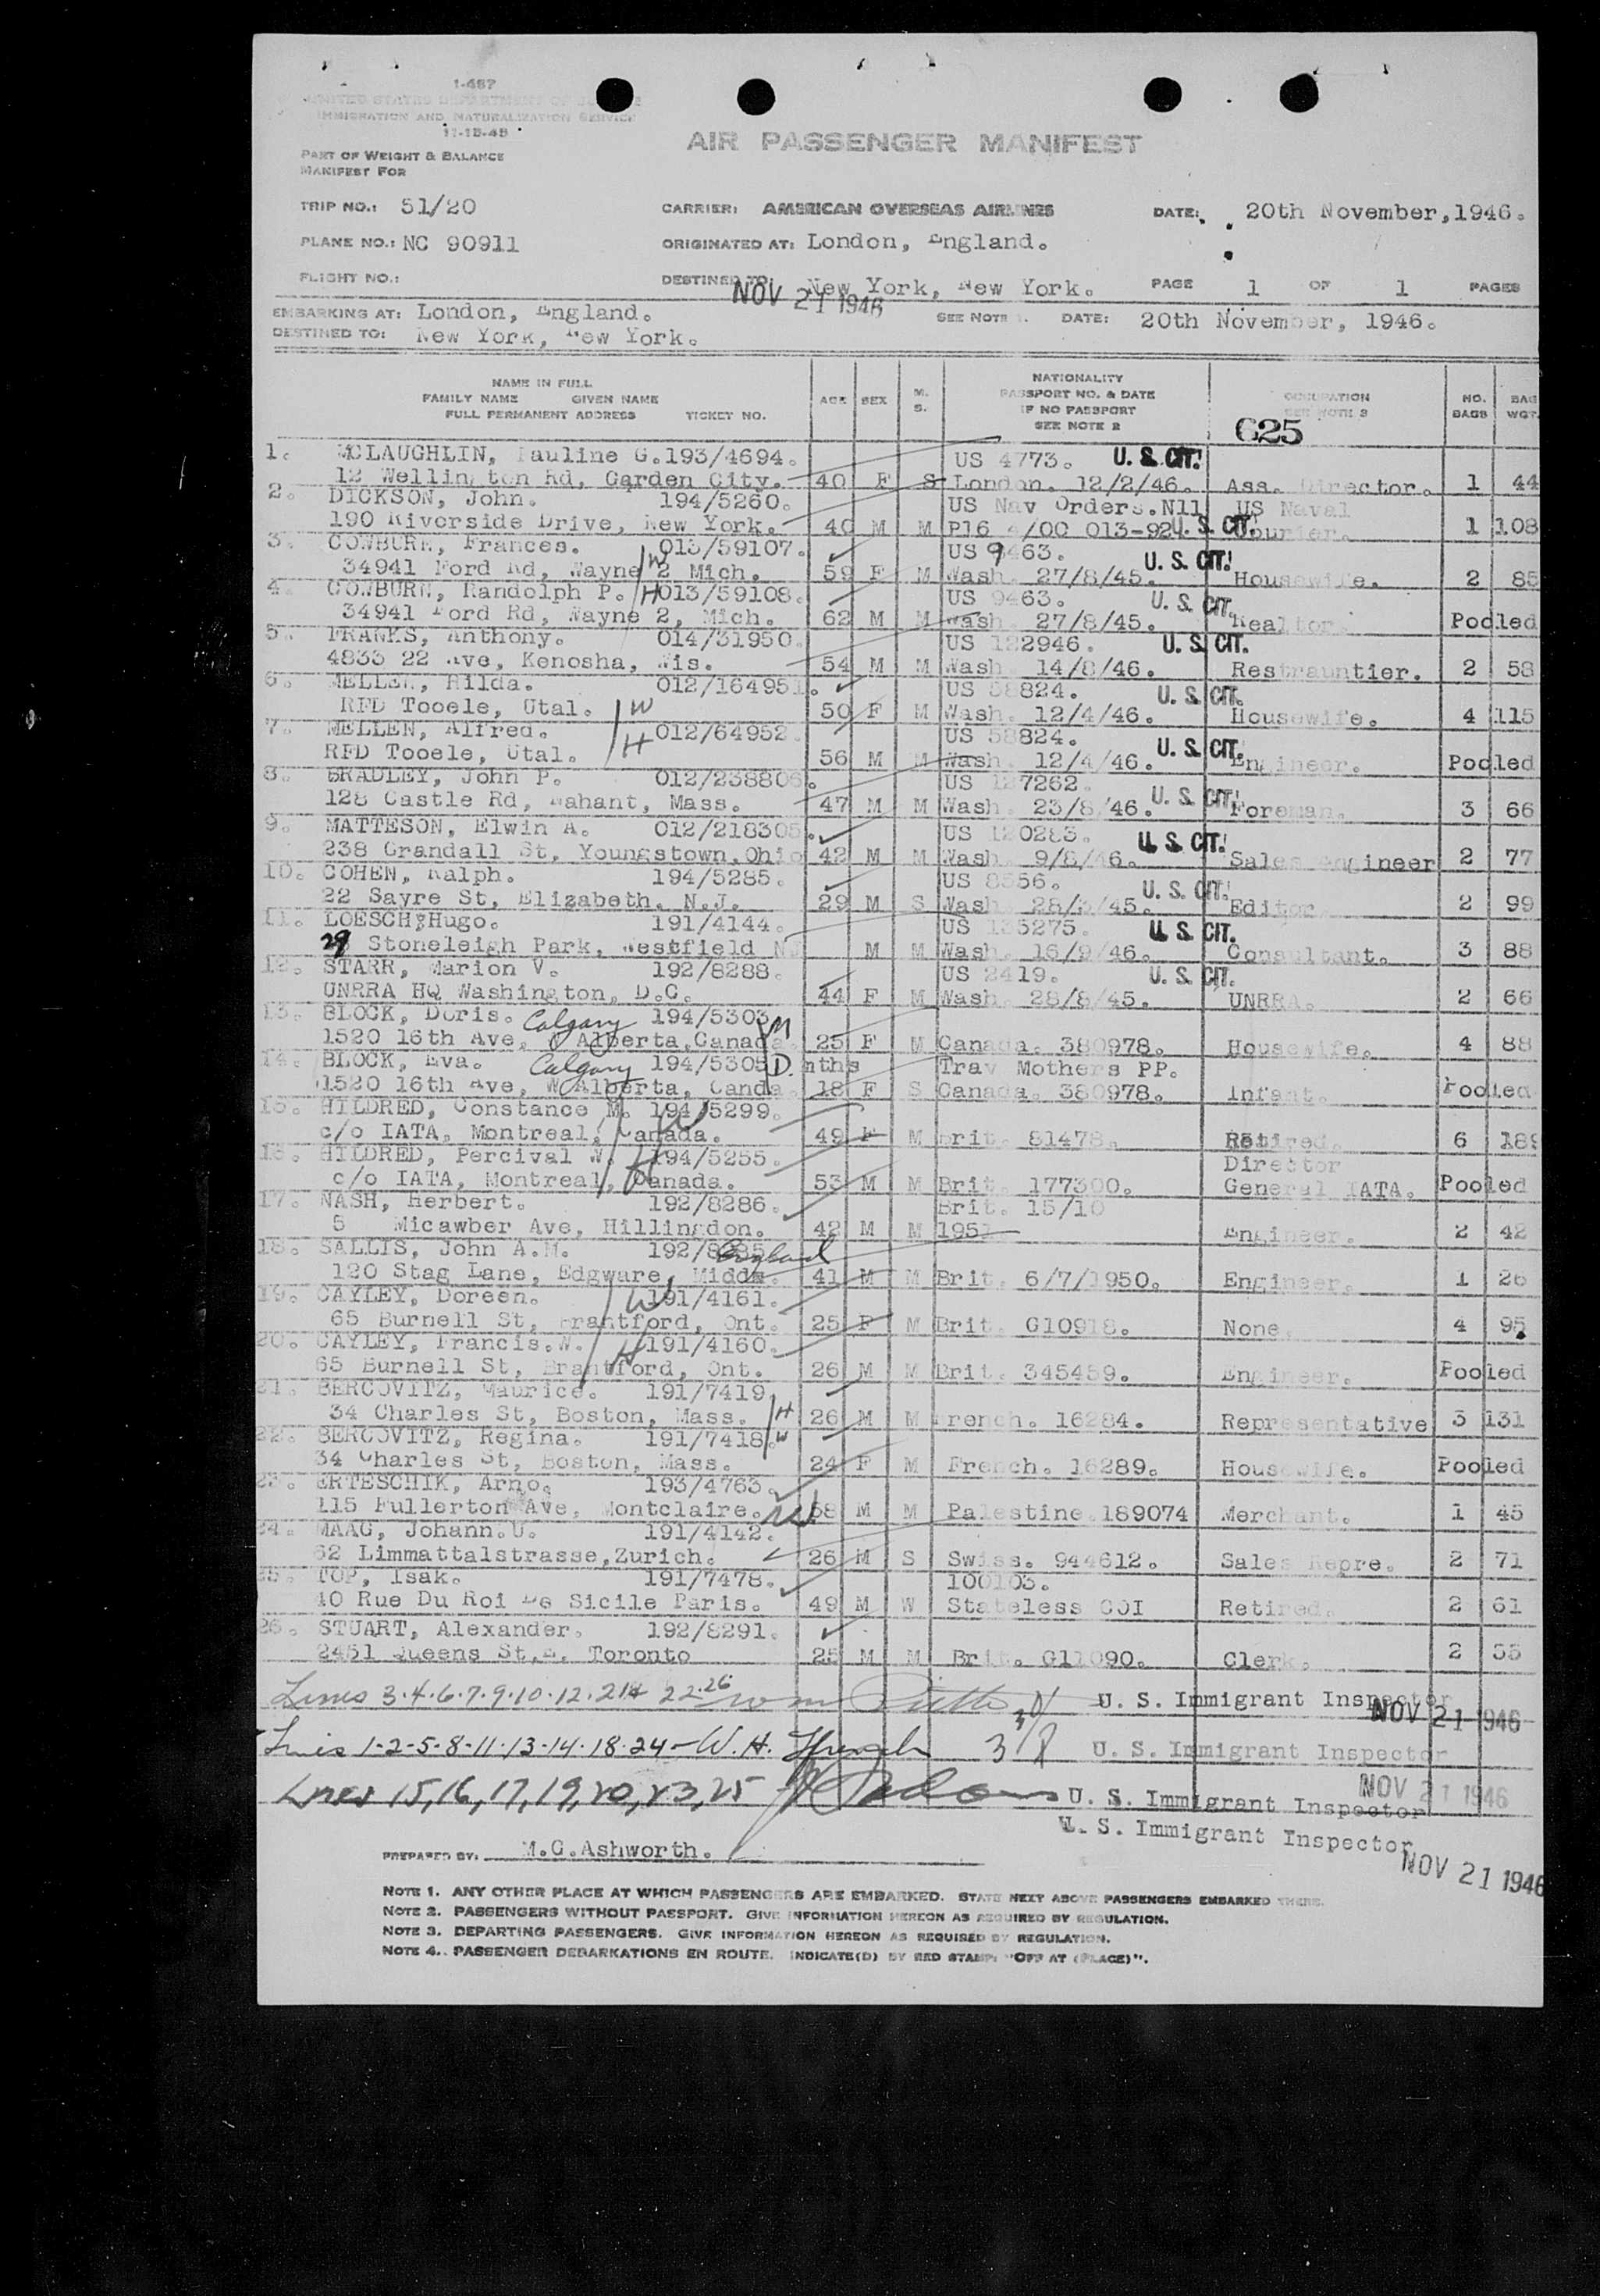 1-467
UNITED STATES DEPARTMENT OF JUSTICE
IMMIGRATION AND NATURALIZATION SERVICE
11-15-45
PART OF WEIGHT & BALANCE
MANIFEST FOR
AIR PASSENGER MANIFEST
TRIP NO.: 51/20 CARRIER: AMERICAN OVERSEAS AIRLINES DATE: 20th November,1946.
PLANE NO.: NC 90911 ORIGINATED AT: London, England.
FLIGHT NO.: DESTINED TO: New York, New York. PAGE 1 OF 1 PAGES
NOV 21 1946
EMBARKING AT: London, England. SEE NOTE 1. DATE: 20th November, 1946.
DESTINED TO: New York, New York.
NAME IN FULL
FAMILY NAME GIVEN NAME
FULL PERMANENT ADDRESS TICKET NO.
AGE SEX M. S.
NATIONALITY
PASSPORT NO. & DATE
IF NO PASSPORT
SEE NOTE 2
OCCUPATION
SEE NOTE 3
NO. BAGS BAG WGT.
625
1. MCLAUGHLIN, Pauline G. 193/4694. US 4773. U.S. CIT.
12 Wellington Rd, Garden City. 40 F S London. 12/2/46. Ass. Director. 1 44
2. DICKSON, John. 194/5260. US Nav Orders.N11 US Naval
190 Riverside Drive, New York. 40 M M P16 /00 013-92 U.S. CIT. Courier. 1 108
3. COWBURN, Frances. 013/59107. US 9463. U.S. CIT.
34941 Ford Rd, Wayne 2 Mich. W 59 F M Wash. 27/8/45. Housewife. 2 85
4. COWBURN, Randolph P. H 013/59108. US 9463. U.S. CIT.
34941 Ford Rd, Wayne 2, Mich. 62 M M Wash. 27/8/45. Realtor. Pooled
5. FRANKS, Anthony. 014/31950. US 122946. U.S. CIT.
4833 22 Ave, Kenosha, Wis. 54 M M Wash. 14/8/46. Restrauntier. 2 58
6. MELLEN, Hilda. 012/164951. US 58824. U.S. CIT.
RFD Tooele, Utal. W 50 F M Wash. 12/4/46. Housewife. 4 115
7. MELLEN, Alfred. 012/64952. US 58824. U.S. CIT.
RFD Tooele, Utal. H 56 M M Wash. 12/4/46. Engineer. Pooled
8. BRADLEY, John P. 012/238806. US 127262. U.S. CIT.
128 Castle Rd, Nahant, Mass. 47 M M Wash. 23/8/46. Foreman. 3 66
9. MATTESON, Elwin A. 012/218305. US 120283. U.S. CIT.
238 Crandall St, Youngstown,Ohio 42 M M Wash. 9/8/46. Sales Engineer 2 77
10. COHEN, Ralph. 194/5285. US 8556. U.S. CIT.
22 Sayre St, Elizabeth. N.J. 29 M S Wash. 28/ /45. Editor 2 99
11. LOESCH, Hugo. 191/4144. US 135275. U.S. CIT.
29 Stoneleigh Park, Westfield NJ M M Wash. 16/9/46. Consultant. 3 88
12. STARR, Marion V. 192/8288. US 2419. U.S. CIT.
UNRRA HQ Washington, D.C. 44 F M Wash. 28/8/45. UNRRA. 2 66
13. BLOCK, Doris. Calgary 194/5303 M
1520 16th Ave, Alberta,Canada. 25 F M Canada. 380978. Housewife. 4 88
14. BLOCK, Eva. Calgary 194/5305 D. mths Trav Mothers PP.
1520 16th Ave, W Alberta, Canda. 18 F S Canada. 380978. Infant. Pooled
15. HILDRED, Constance M. 194/5299. W
c/o IATA, Montreal, Canada. 49 F M Brit. 81478. Retired. 6 189
16. HILDRED, Percival W. H 194/5255. Director
c/o IATA, Montreal, Canada. 53 M M Brit. 177300. General IATA. Pooled
17. NASH, Herbert. 192/8286. Brit. 15/10
5 Micawber Ave, Hillingdon. 42 M M 1951 Engineer. 2 42
18. SALLIS, John A.M. 192/8285 England
120 Stag Lane, Edgware, Middx. 41 M M Brit. 6/7/1950. Engineer. 1 26
19. CAYLEY, Doreen. W 191/4161.
65 Burnell St, Brantford, Ont. 25 F M Brit. G10918. None. 4 95
20. CAYLEY, Francis.W. H 191/4160.
65 Burnell St, Brantford, Ont. 26 M M Brit. 345459. Engineer. Pooled
21. BERCOVITZ, Maurice. 191/7419.
34 Charles St, Boston, Mass. H 26 M M French. 16284. Representative 3 131
22. BERCOVITZ, Regina. 191/7418. W
34 Charles St, Boston, Mass. 24 F M French. 16289. Housewife. Pooled
23. ERTESCHIK, Arno. 193/4763.
115 Fullerton Ave, Montclaire. N.J. 58 M M Palestine 189074 Merchant. 1 45
24. MAAG, Johann.U. 191/4142.
62 Limmattalstrasse,Zurich. 26 M S Swiss. 944612. Sales Repre. 2 71
25. TOP, Isak. 191/7478. 100103.
40 Rue Du Roi De Sicile Paris. 49 M W Stateless COI Retired. 2 61
26. STUART, Alexander. 192/8291.
2451 Queens St,E. Toronto 25 M M Brit. G11090. Clerk. 2 55
Lines 3.4.6.7.9.10.12.21 22.26 U. S. Immigrant Inspector
NOV 21 1946
Lines 1-2-5-8-11-13-14-18-24-W.H. U. S. Immigrant Inspector
Lines 15,16,17,19,20,23,25 U. S. Immigrant Inspector
NOV 21 1946
U. S. Immigrant Inspector
NOV 21 1946
PREPARED BY: M.C.Ashworth.
NOTE 1. ANY OTHER PLACE AT WHICH PASSENGERS ARE EMBARKED. STATE NEXT ABOVE PASSENGERS EMBARKED THERE.
NOTE 2. PASSENGERS WITHOUT PASSPORT. GIVE INFORMATION HEREON AS REQUIRED BY REGULATION.
NOTE 3. DEPARTING PASSENGERS. GIVE INFORMATION HEREON AS REQUIRED BY REGULATION.
NOTE 4. PASSENGER DEBARKATIONS EN ROUTE. INDICATE(D) BY RED STAMP: "OFF AT (PLACE)".